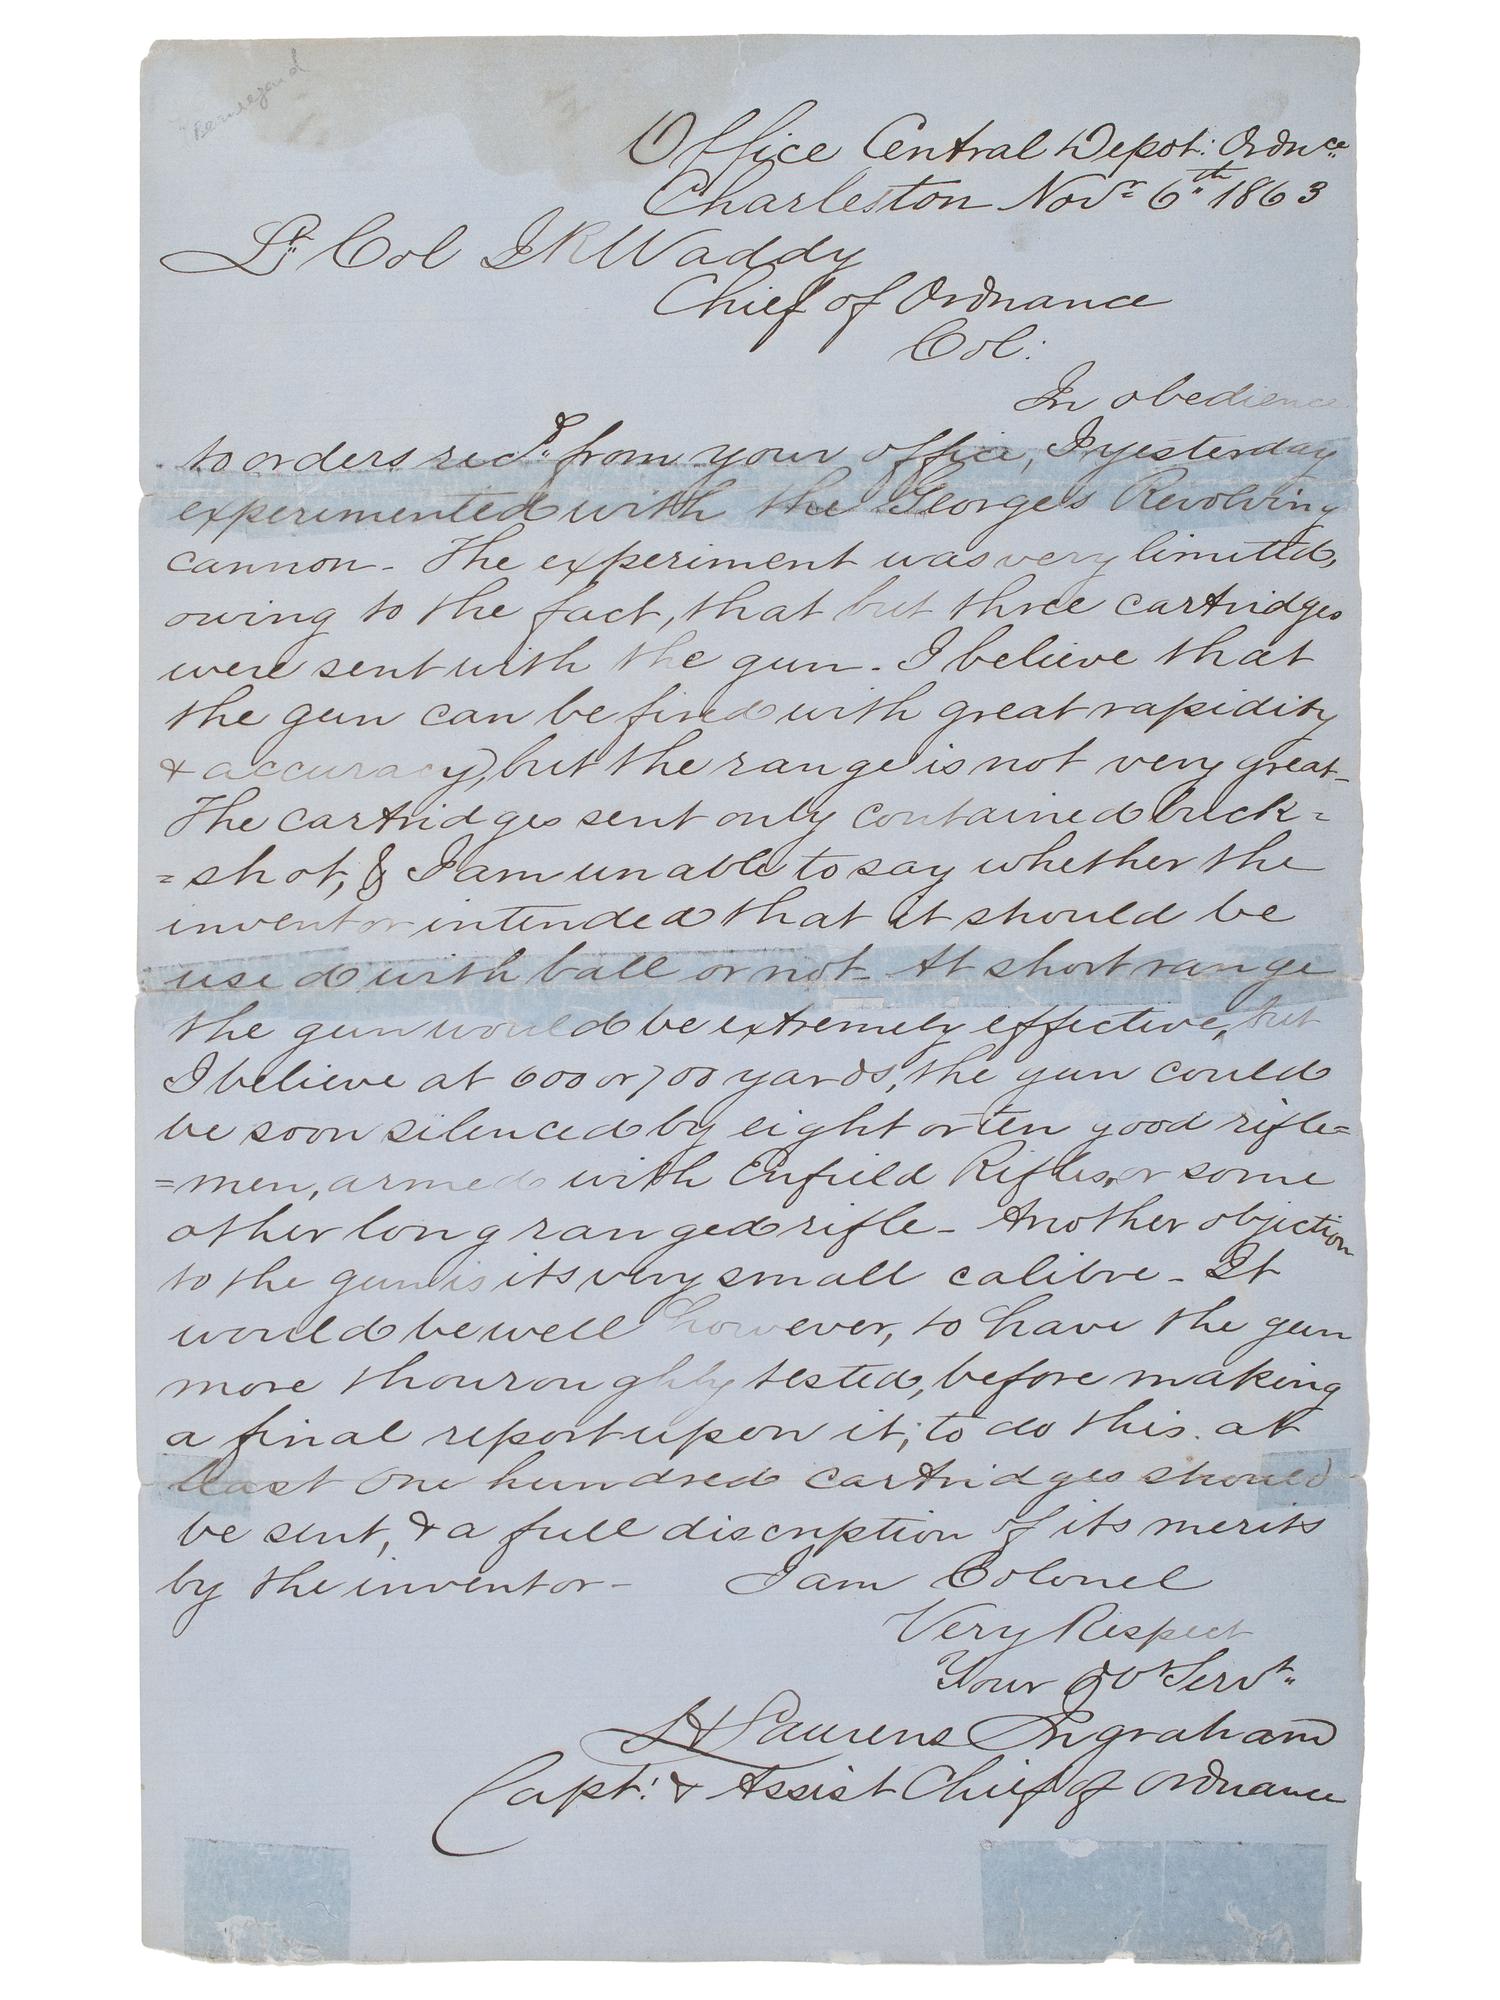 Beauregard
Office Central Depot: Ordnce.
Charleston Novr 6th 1863
Lt. Col J R Waddy
Chief of Ordnance
Col:
In obedience
to orders recd. from your office, I yesterday
experimented with the George's Revolving
cannon - The experiment was very limited,
owing to the fact, that but three cartridges
were sent with the gun - I believe that
the gun can be fired with great rapidity
& accuracy, but the range is not very great -
The cartridges sent only contained buck =
= shot, & I am unable to say whether the
inventor intended that it should be
used with ball or not - At short range
the gun would be extremely effective, but
I believe at 600 or 700 yards, the gun could
be soon silenced by eight or ten good rifle =
= men, armed with Enfield Rifles, or some
other long ranged rifle - Another objection
to the gun is its very small calibre - It
would be well however, to have the gun
more thouroughly tested, before making
a final report upon it; to do this at
least one hundred cartridges should
be sent, & a full discription of its merits
by the inventor - I am Colonel
Very Respect
Your Obt Servt.
H Laurens Ingraham
Capt. & Assist Chief of Ordnance